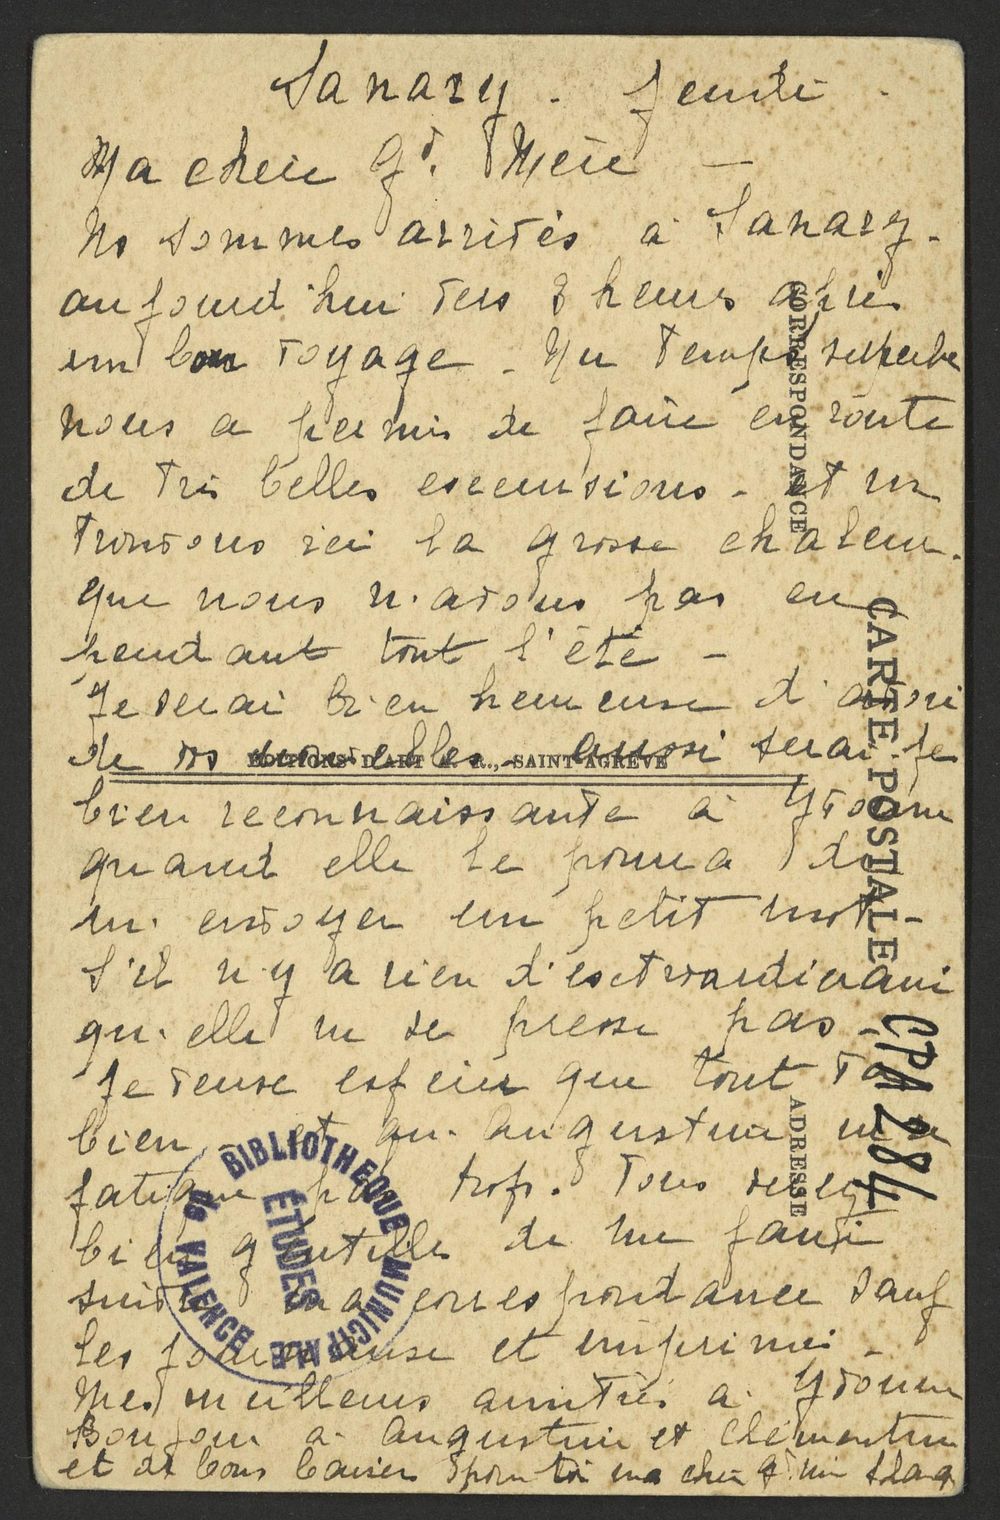 Sanary - Jeudi -
Ma chère Gd. Mère -
Ns sommes arrivés à Sanary -
aujourd'hui vers 3 heures après
un bon voyage - Un temps superbe
nous a permis de faire en route
de très belles excursions - et ns
trouvons ici la grosse chaleur.
que nous n'avons pas eu
pendant tout l'été -
Je serai bien heureuse d'avoir
de vos nouvelles - aussi serai je
bien reconnaissante à Yvonne
quand elle le pourra de
m'envoyer un petit mot -
S'il n'y a rien d'extraordinaire
qu'elle ne se presse pas -
Je veux espérer que tout va
bien et qu'Augustine ne se
fatigue pas trop. Vous serez
bien gentilles de me faire
suivre ma correspondance sauf
les journeaux et imprimés -
Mes meilleurs amitiés à Yvonne
Bonjour à Augustine et Clémentine
et de bons baisers pour toi ma chère gd. mère
CORRESPONDANCE
CARTE POSTALE
ADRESSE
ÉDITIONS D'ART C. R., SAINT-AGRÈVE
CPA 284
BIBLIOTHEQUE MUNICIPALE
DE VALENCE
ÉTUDES